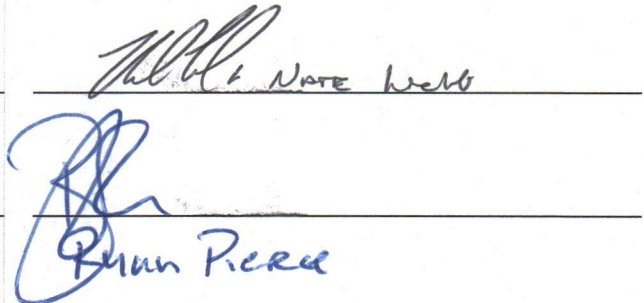 Nate Webb
Ryan Pierce